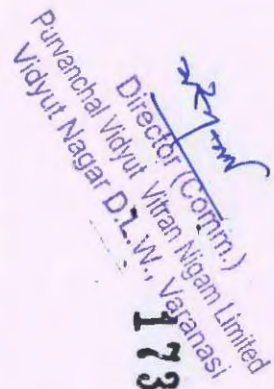 Director (Comm.)
Purvanchal Vidyut Vitran Nigam Limited
Vidyut Nagar D.L.W., Varanasi
173